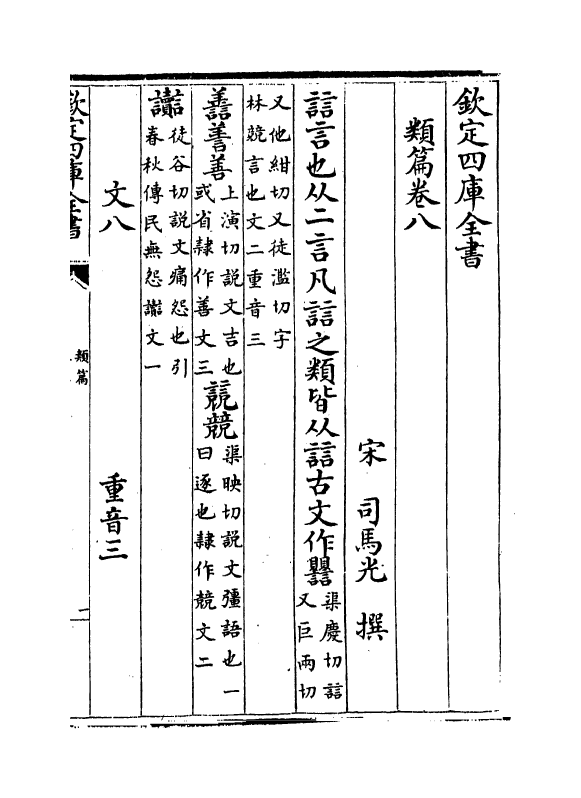 欽定四庫全書
類篇卷八
宋 司馬光 撰
誩言也从二言凡誩之類皆从誩古文作
渠慶切誩
又巨兩切
又他紺切又徒濫切字
林競言也文二重音三
譱善
上演切說文吉也
或省隸作善文三
競
渠映切說文彊語也一
曰逐也隸作競文二
讟
徒谷切說文痛怨也引
春秋傳民無怨讟文一
文八 重音三
欽定四庫全書
類篇
一